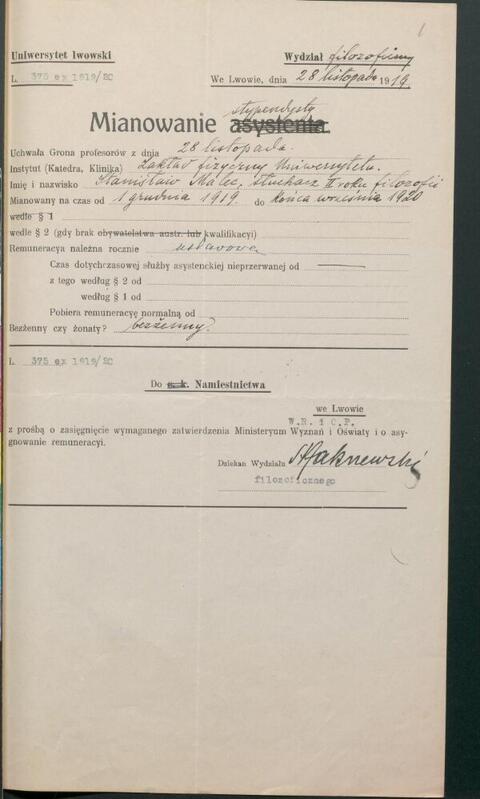 1
Uniwersytet lwowski Wydział filozoficzny
L. 375 ex 1919/20 We Lwowie, dnia 28 listopada 1919.
stypendysty
Mianowanie asystenta
Uchwała Grona profesorów z dnia 28 listopada.
Instytut (Katedra, Klinika) Zakład fizyczny Uniwersytetu.
Imię i nazwisko Stanisław Malec, słuchacz II roku filozofii
Mianowany na czas od 1 grudnia 1919 do końca września 1920
wedle § 1
wedle § 2 (gdy brak obywatelstwa austr. lub kwalifikacyi)
Remuneracya należna rocznie ustawowa
Czas dotychczasowej służby asystenckiej nieprzerwanej od
z tego według § 2 od
według § 1 od
Pobiera remuneracyę normalną od
Bezżenny czy żonaty? bezżenny.
L. 375 ex 1919/20
Do c. k. Namiestnictwa
we Lwowie
W.R. i O.P.
z prośbą o zasięgnięcie wymaganego zatwierdzenia Ministeryum Wyznań i Oświaty i o asy-
gnowanie remuneracyi.
Dziekan Wydziału
filozoficznego